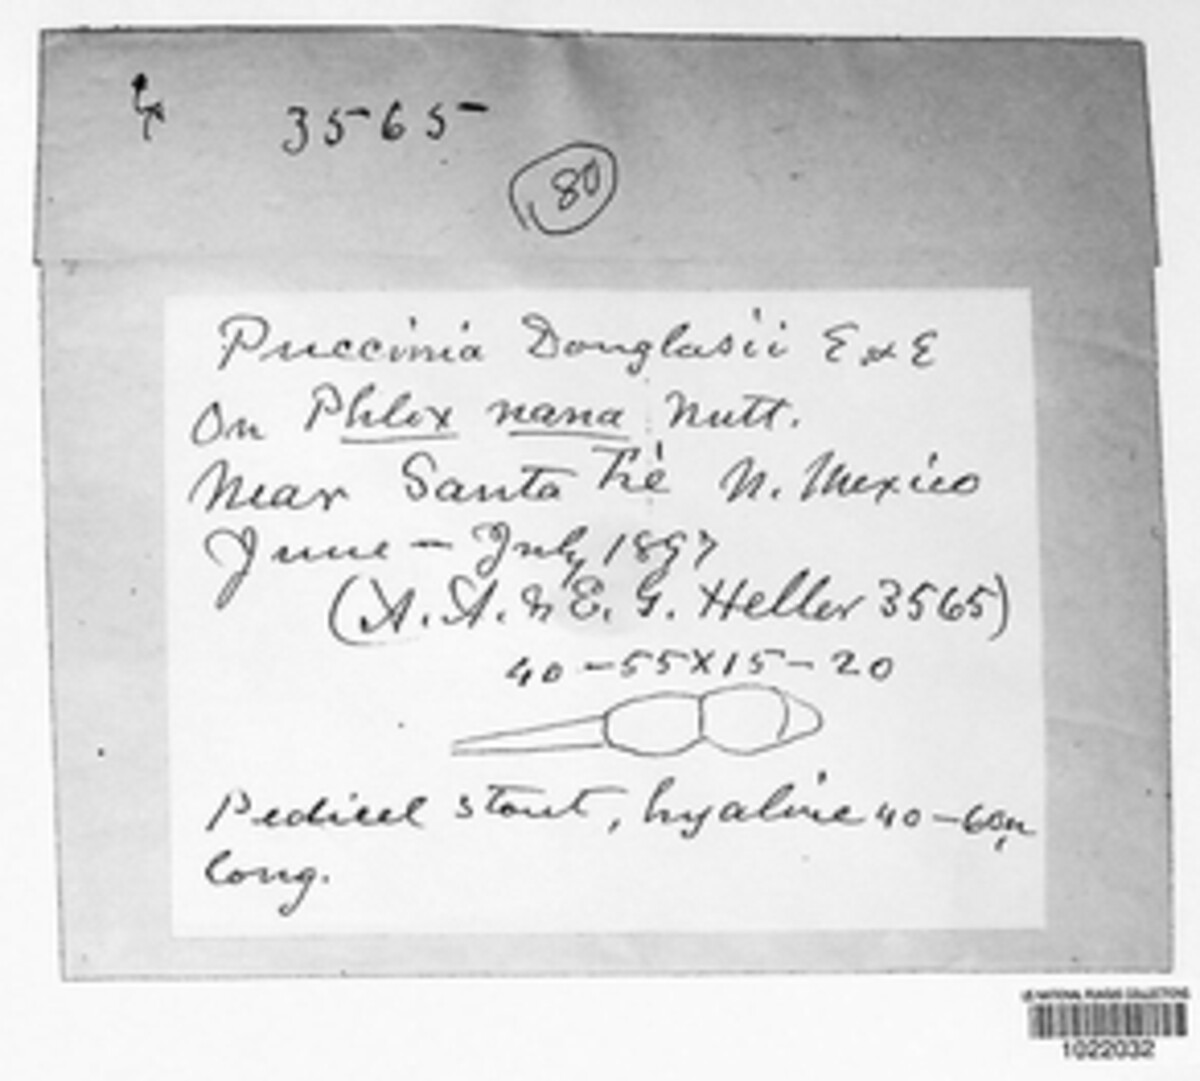 3565
80
Puccinia Douglasii E & E
On Phlox nana Nutt.
Near Santa Fé N. Mexico
June - July 1897
(A. A. & E. G. Heller 3565)
40-55X15-20
Pedicel stout, hyaline 40-60µ
long.
US NATIONAL FUNGUS COLLECTIONS
1022032